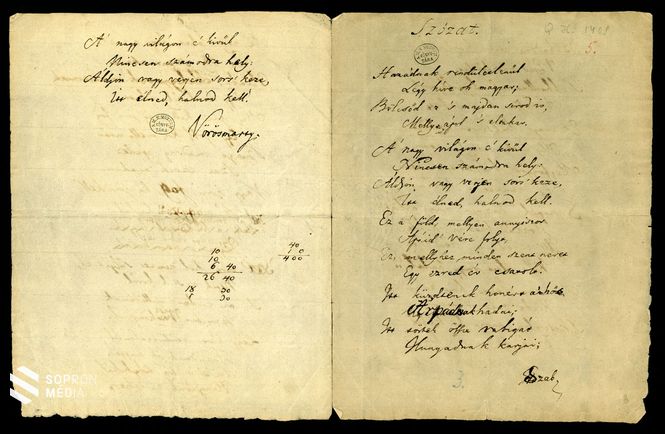 A' nagy világon e' kivűl
Nincsen számodra hely:
Áldjon vagy verjen sors keze,
Itt élned, halnod kell.
Vörösmarty.
10
10
6 40
26 40
18 30
1 30
40
10
400
SOPRON
MÉDIA
Szózat.
5.
Hazádnak rendűletlenűl
Légy híve oh magyar;
Bölcsőd ez 's majdan sírod is,
Melly ápol 's eltakar.
A' nagy világon e' kivűl
Nincsen számodra hely:
Áldjon, vagy verjen sors keze,
Itt élned, halnod kell.
Ez a' föld, mellyen annyiszor
Apáid' vére folyt,
Ez, mellyhez minden szent nevet
Egy ezred év csatolt.
Itt küzdtenek honért a' hős
Árpádnak hadai;
Itt törtek össze rabigát
Hunyadnak karjai;
3.
Szab